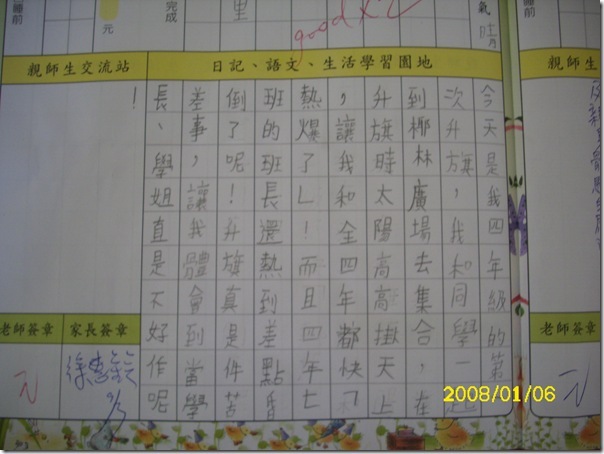 睡前
元
完成
里
good x2
氣
晴
睡前
親師生交流站
日記、語文、生活學習園地
親師生
今天是我四年級的第一
次升旗，我和同學一起
到椰林廣場去集合，在
升旗時太陽高高掛天上
，讓我和全四年都快「
熱爆了」！而且四年七
班的班長還熱到差點昏
倒了呢！升旗真是件苦
差事，讓我體會到當學
長、學姐直是不好作呢
！
老師簽章
家長簽章
老師簽章
2008/01/06